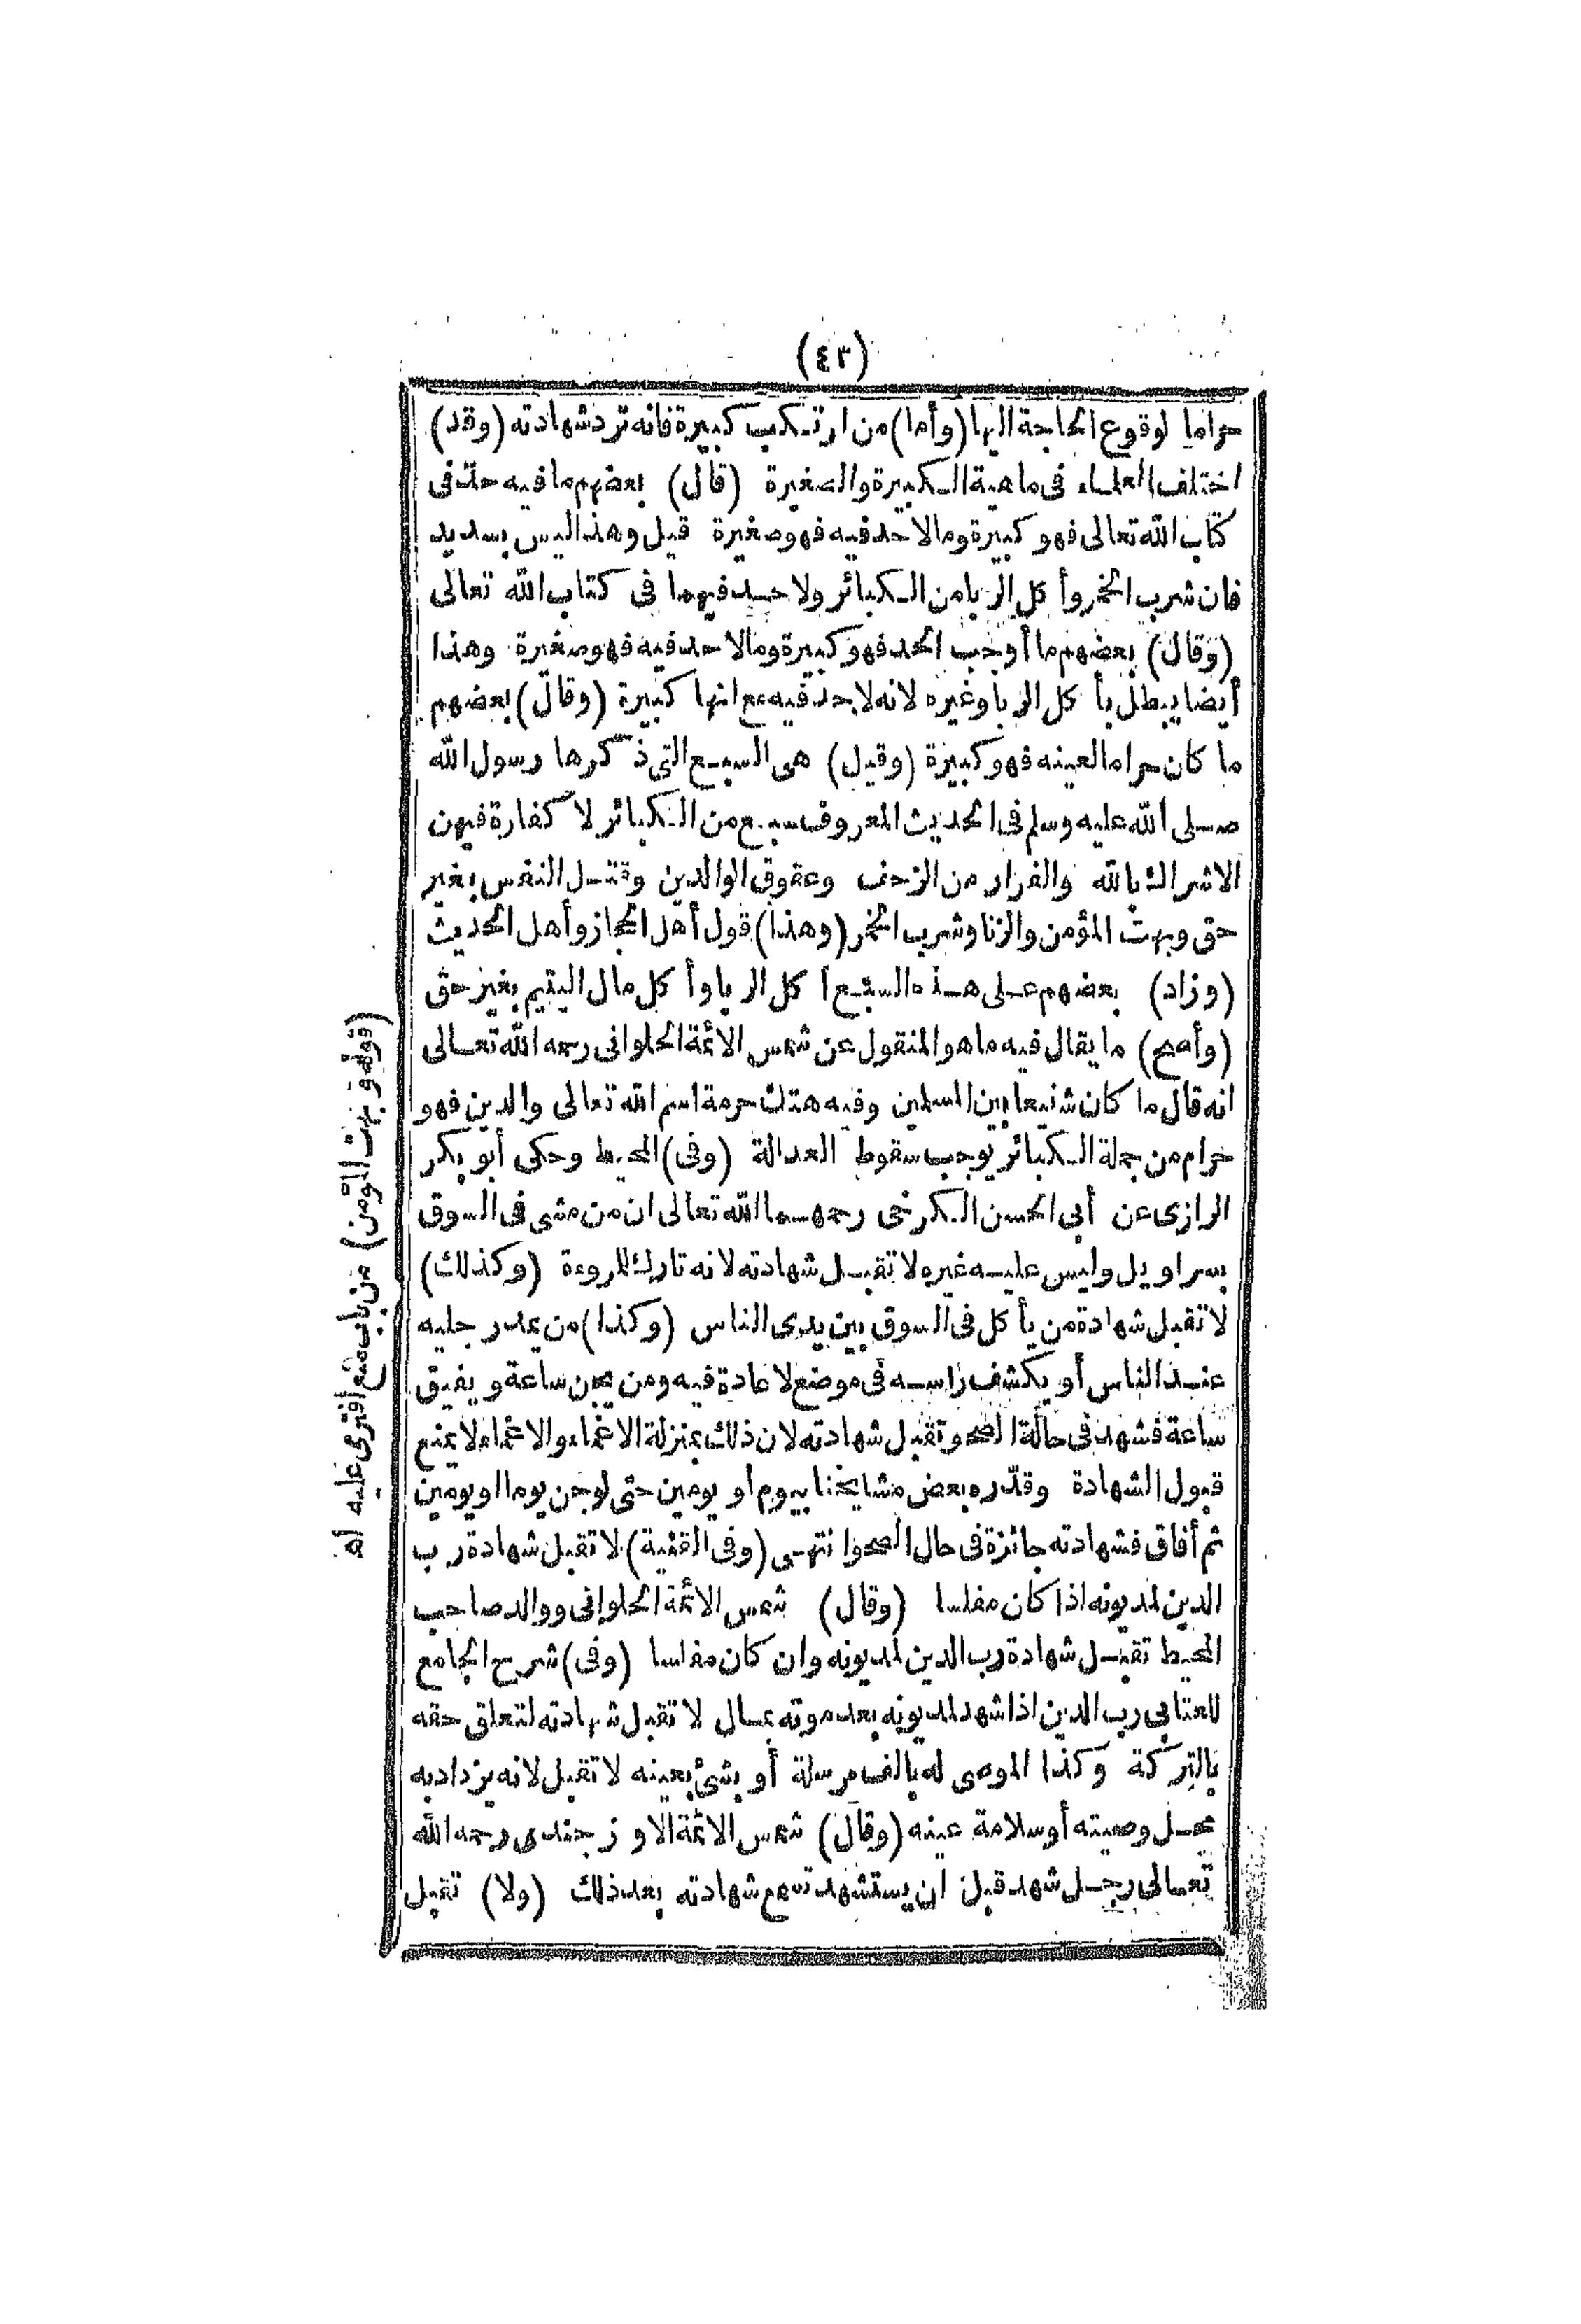 (٤٣)
حراما لوقوع الحاجة اليها (وأما) من ارتكب كبيرة فانه ترد شهادته (وقد)
اختلف العلماء فى ماهية الكبيرة والصغيرة (قال) بعضهم ما فيه حد فى
كتاب الله تعالى فهو كبيرة وما لا حد فيه فهو صغيرة قيل وهذا ليس بسديد
فان شرب الخمر وأ كل الربا من الكبائر ولا حد فيهما فى كتاب الله تعالى
(وقال) بعضهم ما أوجب الحد فهو كبيرة وما لا حد فيه فهو صغيرة وهذا
أيضا يبطل بأ كل الربا وغيره لانه لا حد فيه مع انها كبيرة (وقال) بعضهم
ما كان حراما لعينه فهو كبيرة (وقيل) هى السبع التى ذكرها رسول الله
صلى الله عليه وسلم فى الحديث المعروف سبع من الكبائر لا كفارة فيهن
الاشراك بالله والفرار من الزحف وعقوق الوالدين وقتل النفس بغير
حق وبهت المؤمن والزنا وشرب الخمر (وهذا) قول أهل الحجاز وأهل الحديث
(وزاد) بعضهم على هذه السبع أ كل الربا وأ كل مال اليتيم بغير حق
(وأصح) ما يقال فيه ما هو المنقول عن شمس الائمة الحلوانى رحمه الله تعالى
انه قال ما كان شنيعا بين المسلمين وفيه هتك حرمة اسم الله تعالى والدين فهو
حرام من جملة الكبائر يوجب سقوط العدالة (وفى) المحيط وحكى أبو بكر
الرازى عن أبى الحسن الكرخى رحمهما الله تعالى ان من مشى فى السوق
بسراويل وليس عليه غيره لا تقبل شهادته لانه تارك للروءة (وكذلك)
لا تقبل شهادة من يأ كل فى السوق بين يدى الناس (وكذا) من يمد رجليه
عند الناس أو يكشف راسه فى موضع لا عادة فيه ومن يجن ساعة ويفيق
ساعة فشهد فى حالة الصحو تقبل شهادته لان ذلك بمنزلة الاغماء والاغماء لا يمنع
قبول الشهادة وقدره بعض مشايخنا بيوم او يومين حتى لو جن يوما او يومين
ثم أفاق فشهادته جائزة فى حال الصحو انتهى (وفى القنية) لا تقبل شهادة رب
الدين لمديونه اذا كان مفلسا (وقال) شمس الائمة الحلوانى ووالد صاحب
المحيط تقبل شهادة رب الدين لمديونه وان كان مفلسا (وفى) شرح الجامع
للعتابى رب الدين اذا شهد لمديونه بعد موته بمال لا تقبل شهادته لتعلق حقه
بالتركة وكذا الموصى له بالف مرسلة أو بشئ بعينه لا تقبل لانه يزداد به
محل وصيته أو سلامة عينه (وقال) شمس الائمة الاوزجندى رحمه الله
تعالى رجل شهد قبل ان يستشهد تسمع شهادته بعد ذلك (ولا) تقبل
(قوله وبهت المؤمن) من باب منع افترى عليه اه